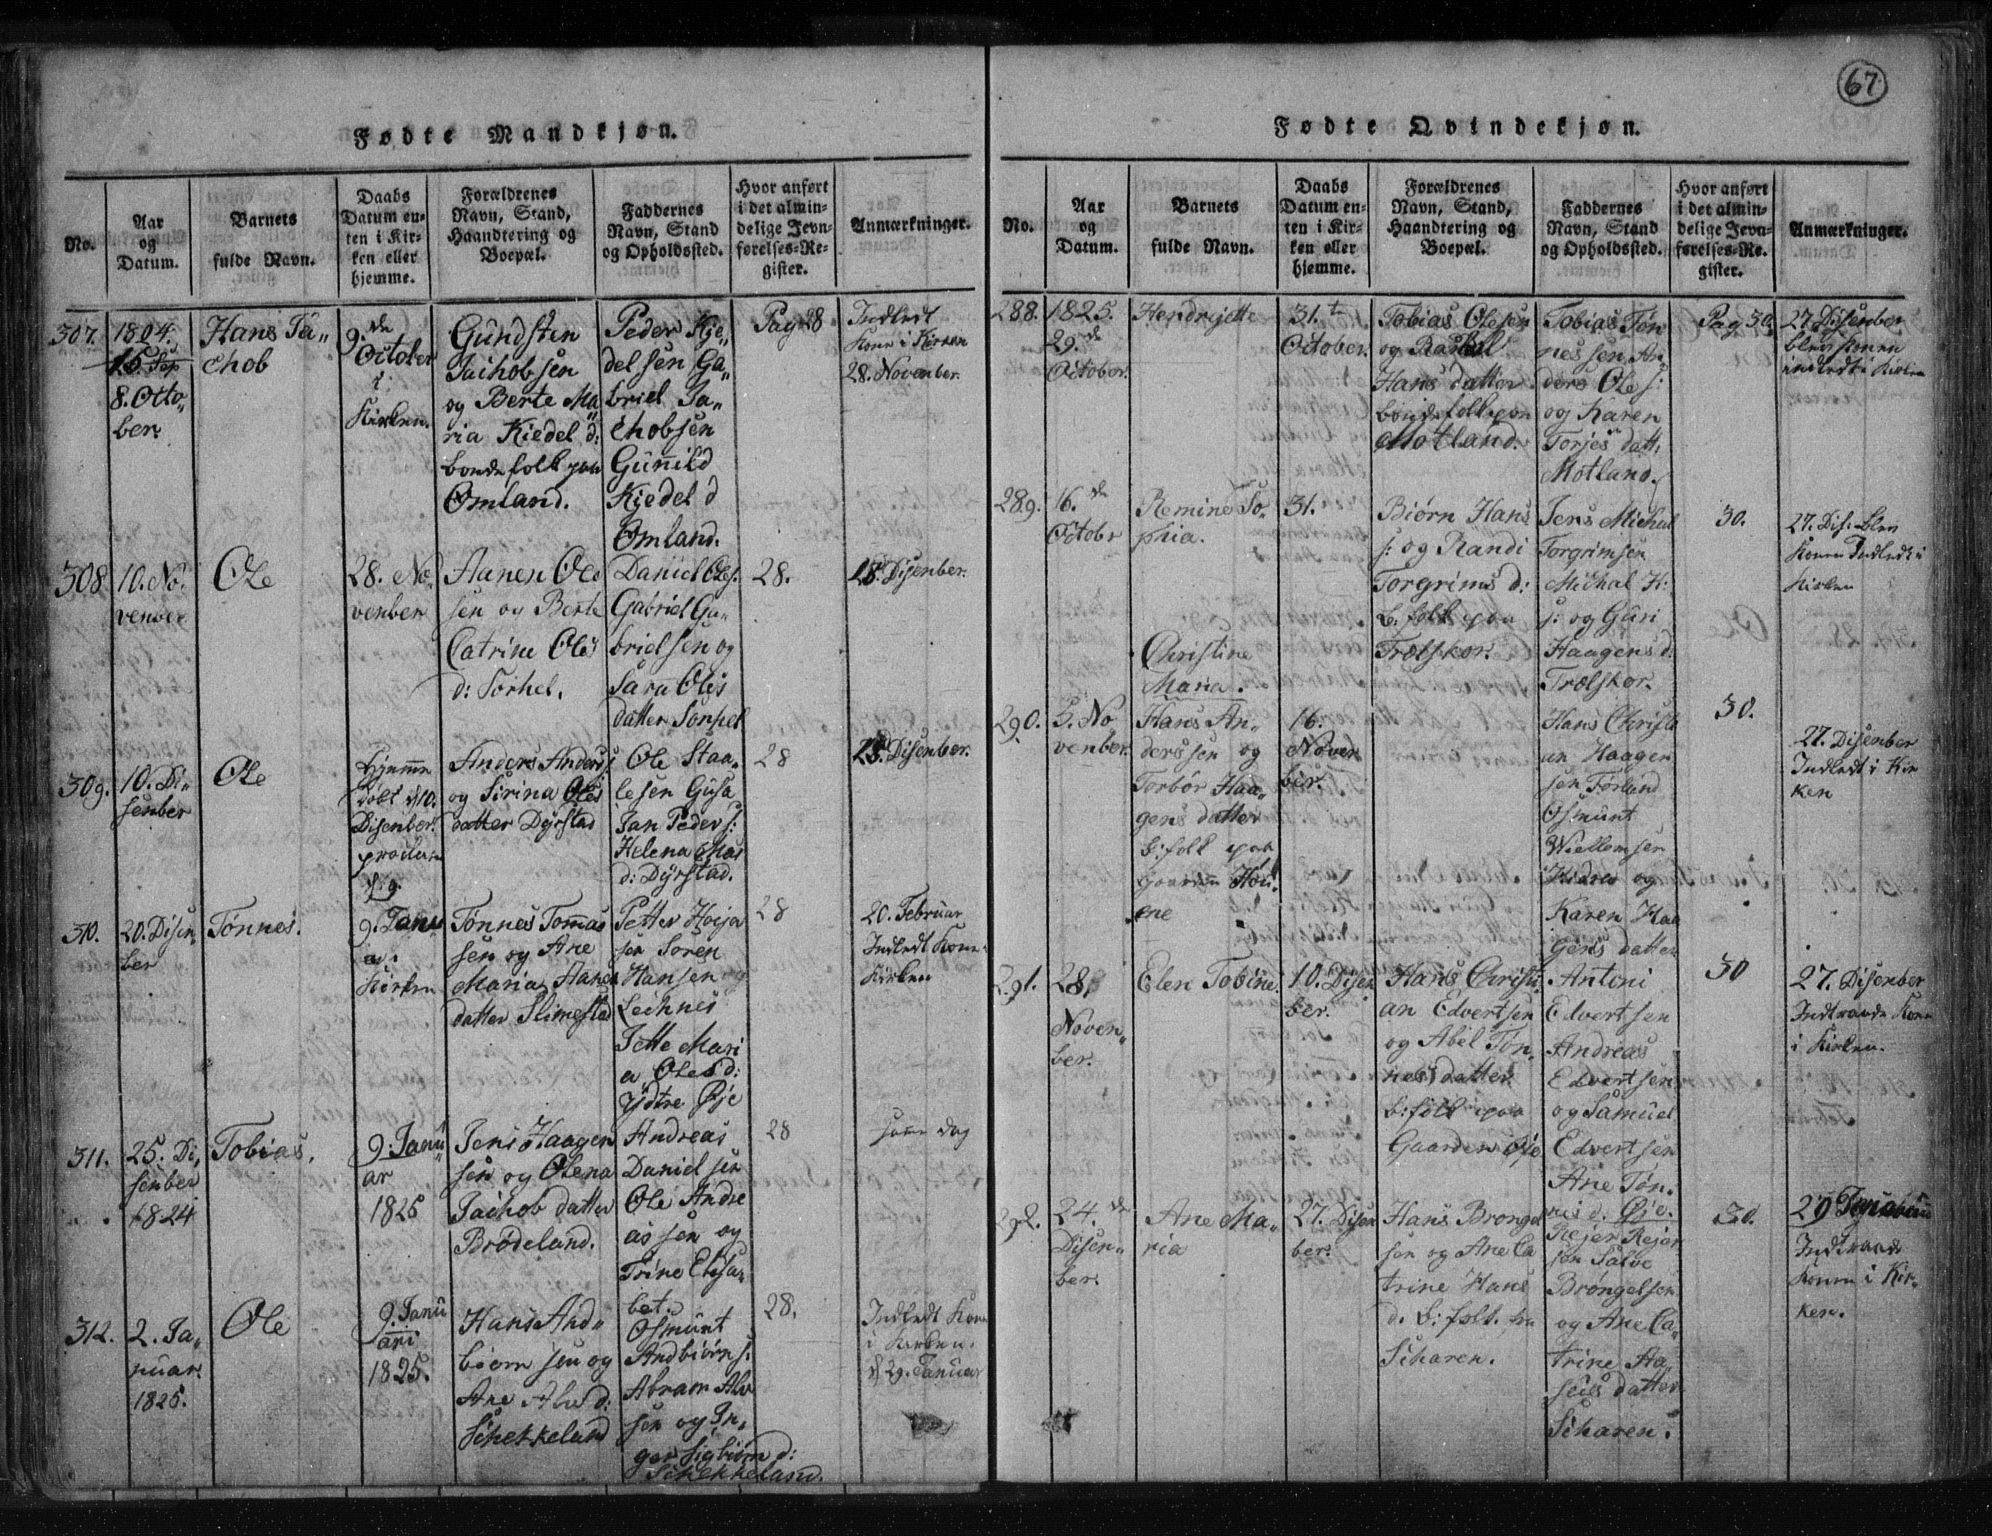 67
Fødte Mandkjøn.
No.
Aar
og
Datum.
Barnets
fulde Navn.
Daabs
Datum en-
ten i Kir-
ken eller
hjemme.
Forældrenes
Navn, Stand,
Haandtering og
Boepæl.
Faddernes
Navn, Stand
og Opholdssted.
Hvor anført
i det almin-
delige Jevn-
førelses-Re-
gister.
Anmærkninger.
307.
1804.
8. Octo„
ber.
Hans Ja„
chob
9. de
October
i
Kirken.
Gundsten
Jaihobsen
og Berte Ma
ria Kiedel d:
bonde folk paa
Omland.
Peder Kje„
delsen Ga„
briel Ja„
chobsen
Gunild
Kjedel d
Omland.
Pag 28
Indledt
Kone i Kirken
28. November.
308.
10. No„
venber
Ole
28. No„
venber
Aanen Ole
sen og Berte
Catrine Oles
d:
Daniel Oles.
Gabriel Ga„
brielsen og
Sara Oles
datter
28.
Disenber.
309.
10. Di„
senber
Ole
Hjemme
døbt d 10.
Disenber.
Anders Anders
og Sirina Oles
datter Dyrstad
Ole Staa„
lesen Gusa
Jan Peder s:
Helena
d: Dyrstad.
28
Disenber.
310.
20. Disen
ber
Tønnes.
9. Janu
i
Kirken
Tønnes Tomas
sen og Ane
Maria Aanen
datter Slimestad
Petter Hoija
sen Soren
Hansen
Jette Mari
a Oles d:
ydtre Øje
28
20. Februar
Indledt Kone
Kirken
311.
25. Di„
senber
1824
Tobias.
9. Janu
ar
1825
Jens Haagen
sen og Olena
Jaihob datter
Brødeland.
Andreas
Daniel sen
Ole Andre
as sen og
Trine Elisa„
bet.
28
same dag
312.
2. Ja„
nuar.
1825.
Ole
9. Janu
ari
1825.
Hans And„
biørn sen og
Ane
Schekkeland
Osmunt
Andbiørn s:
Abram
sen og In„
ger Sigbiørn d:
Schekkeland.
28.
Indledt Kone
i Kirken.
d 29. Januar
Fødte Qvindekjøn.
No.
Aar
og
Datum.
Barnets
fulde Navn.
Daabs
Datum en-
ten i Kir-
ken eller
hjemme.
Forældrenes
Navn, Stand,
Haandtering og
Boepæl.
Faddernes
Navn, Stand
og Opholdssted.
Hvor anført
i det almin-
delige Jevn-
førelses-Re-
gister.
Anmærkninger.
288.
1825.
29. de
October.
Hendrijette
31. t
October.
Tobias Olesen
og Rachel
Hans datter
bonde folk paa
Motland.
Tobias Tøn
nes sen An
ders Ole s:
og Karen
Torjes datt,
Motland.
Pag 30.
27. Disenber
blev konen
indledt i Kirken
289.
16. de
Octobr
Remine So„
phia.
31.
Biørn Hans
s: og Randi
Torgrims d:
b: folk paa
Trælskor.
Jens Michal
Torgrimsen
Michal H:
s: og Guri
Haagens d:
Trælskor.
30.
27. Dis: blev
Konen Indledt i
Kirken
290.
5. No
venber.
Christine
Maria.
Hans An„
derssen og
Torbør Haa„
gens datter
b: folk paa
Gaarden Hou„
ene
16.
Noven
ber.
Hans Christi
an Haagen
sen Førland
Osmunt
Wiellemsen
og
Karen Haa
gens datter
30.
27. Disenber
Indledt i Kir
ken
291.
28.
Noven„
ber.
Elen Tobine.
10. Disen
ber.
Hans Christi„
an Edvertsen
og Abel Tøn„
nes datter
b: folk paa
Gaarden Øje
Antoni
Edvertsen
Andreas
Edvertsen
og Samuel
Edvertsen
Ane Tøn„
nes d. Øje.
30
27. Disenber
Kone
i Kirken.
292.
24. de
Disen„
ber.
Ane Ma„
ria
27. Disen
ber.
Hans Brøngel
sen og Ane Ca
trine Hans
d. b: folk. fra
Scharen.
Rejer Rejer
sen Salve
Brøngelsen
og Ane Ca„
trine Aa„
datter
Scharen.
30.
29
Konen i Kir„
ken.